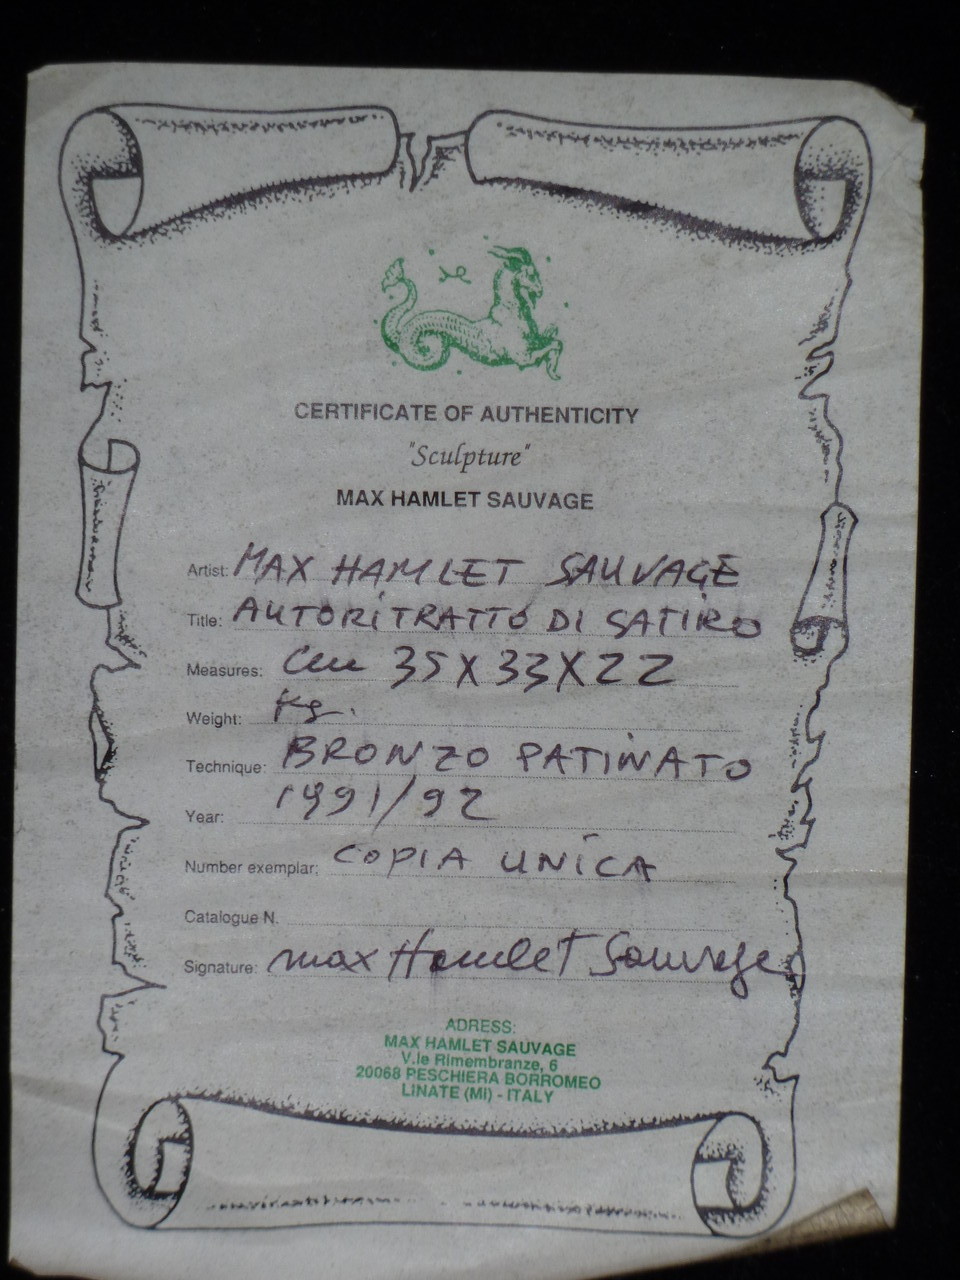 CERTIFICATE OF AUTHENTICITY
"Sculpture"
MAX HAMLET SAUVAGE
Artist: MAX HAMLET SAUVAGE
Title: AUTORITRATTO DI SATIRO
Measures: Cm 35X33X22
Weight: Kg.
Technique: BRONZO PATINATO
Year: 1991/92
Number exemplar: COPIA UNICA
Catalogue N.
Signature: max Hamlet Sauvage
ADRESS:
MAX HAMLET SAUVAGE
V.le Rimembranze, 6
20068 PESCHIERA BORROMEO
LINATE (MI) - ITALY